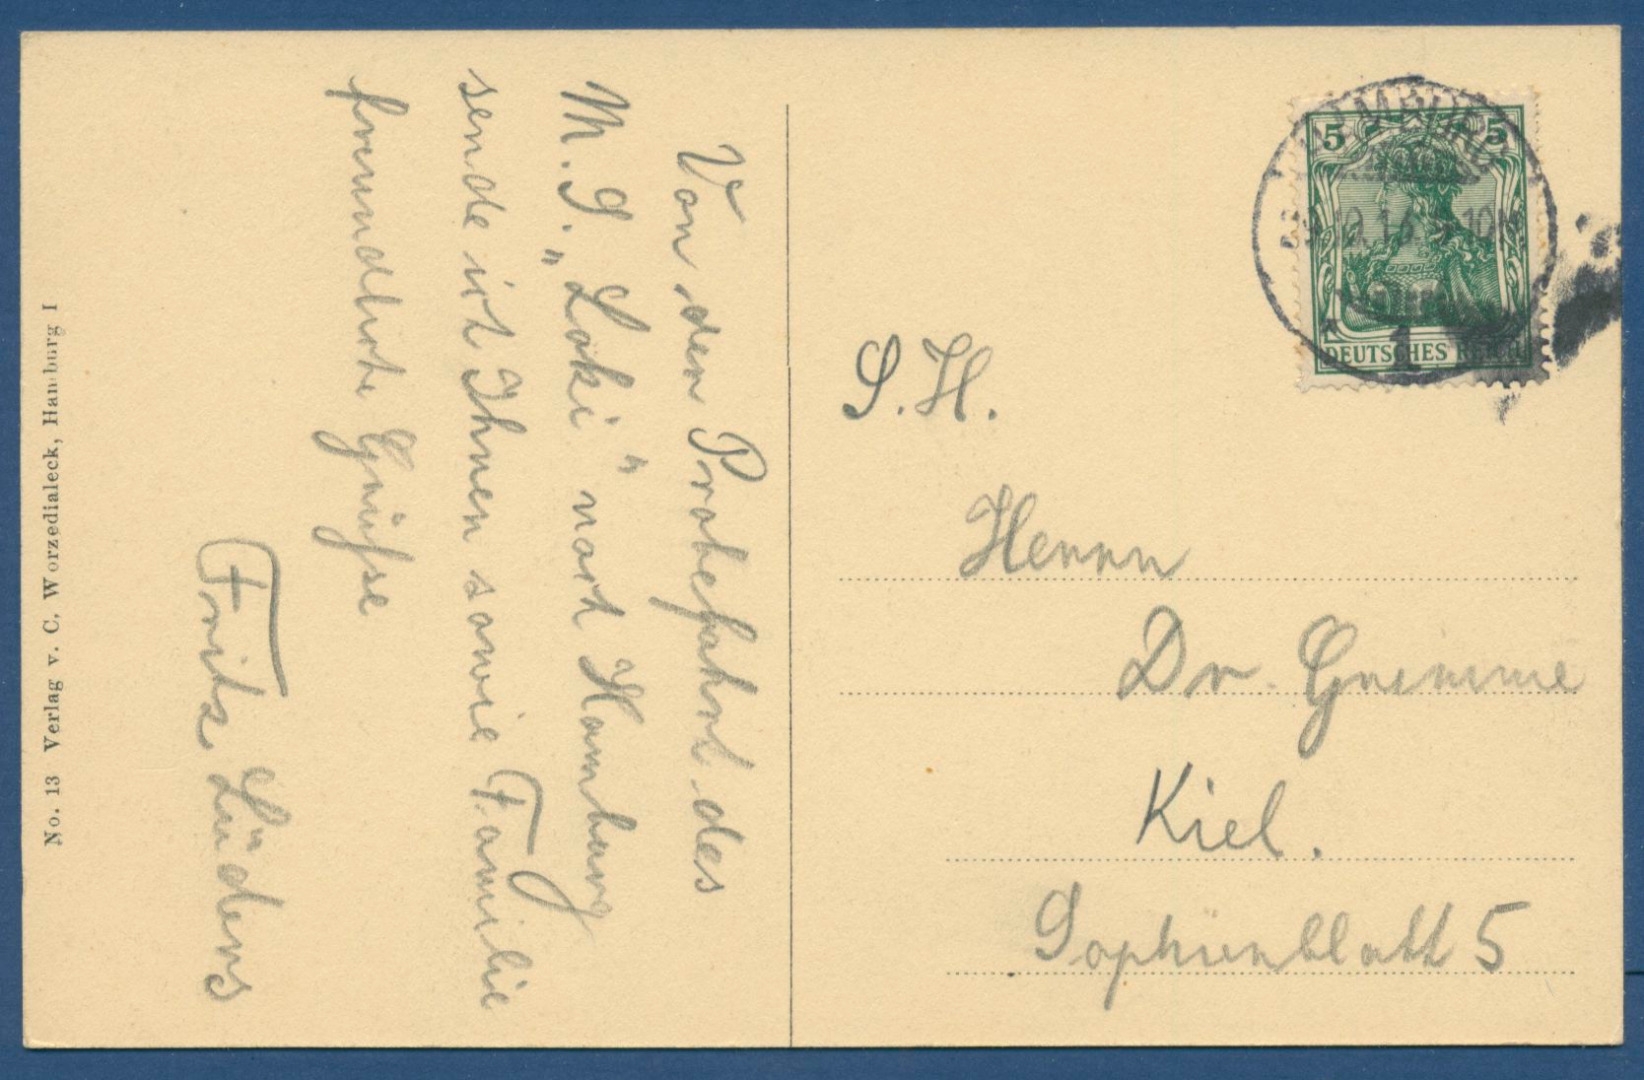 Von der Probefahrt des
M.S. „Loki" nach Hamburg
sende ich Ihnen sowie Familie
freundliche Grüsse
Fritz Lüders
No. 13 Verlag v. C. Worzedialeck, Hamburg 1
5 5
DEUTSCHES REICH
HAMBURG
10.16
1
S.H.
Herrn
Dr. Grimme
Kiel.
Sophienblatt 5